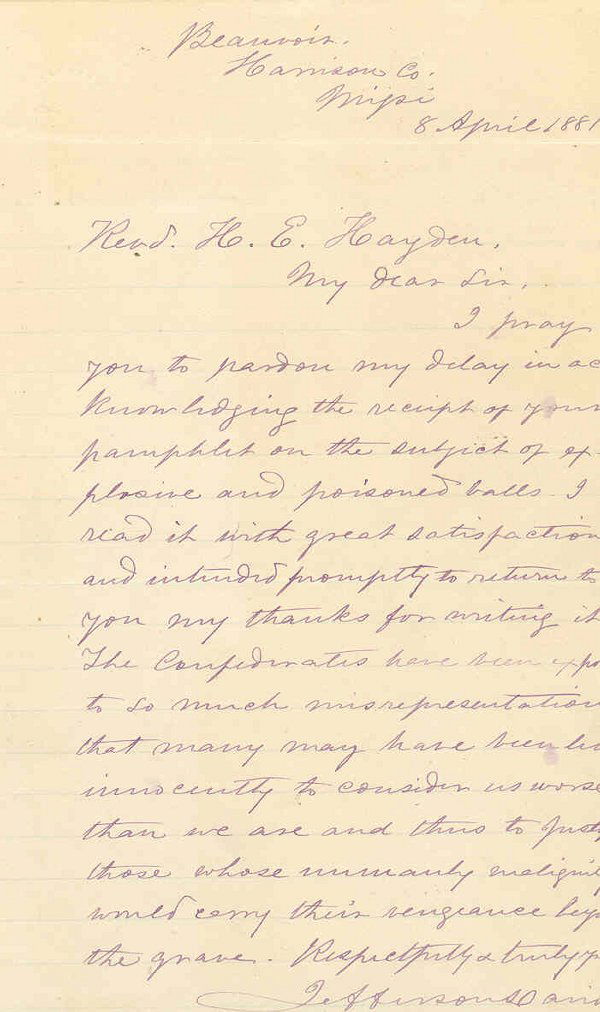 Beauvoir.
Harrison Co.
Missi
8 April 1881
Revd. H. E. Hayden.
My dear Sir,
I pray
you to pardon my delay in ac
knowledging the receipt of your
pamphlet on the subject of ex-
plosive and poisoned balls. I
read it with great satisfaction
and intended promptly to return to
you my thanks for writing it
The Confederates have been expo
to so much misrepresentation
that many may have been
innocently to consider us worse
than we are and thus to justi
those whose unmanly malignity
would carry their vengeance bey
the grave. Respectfully & truly y
Jefferson Davis